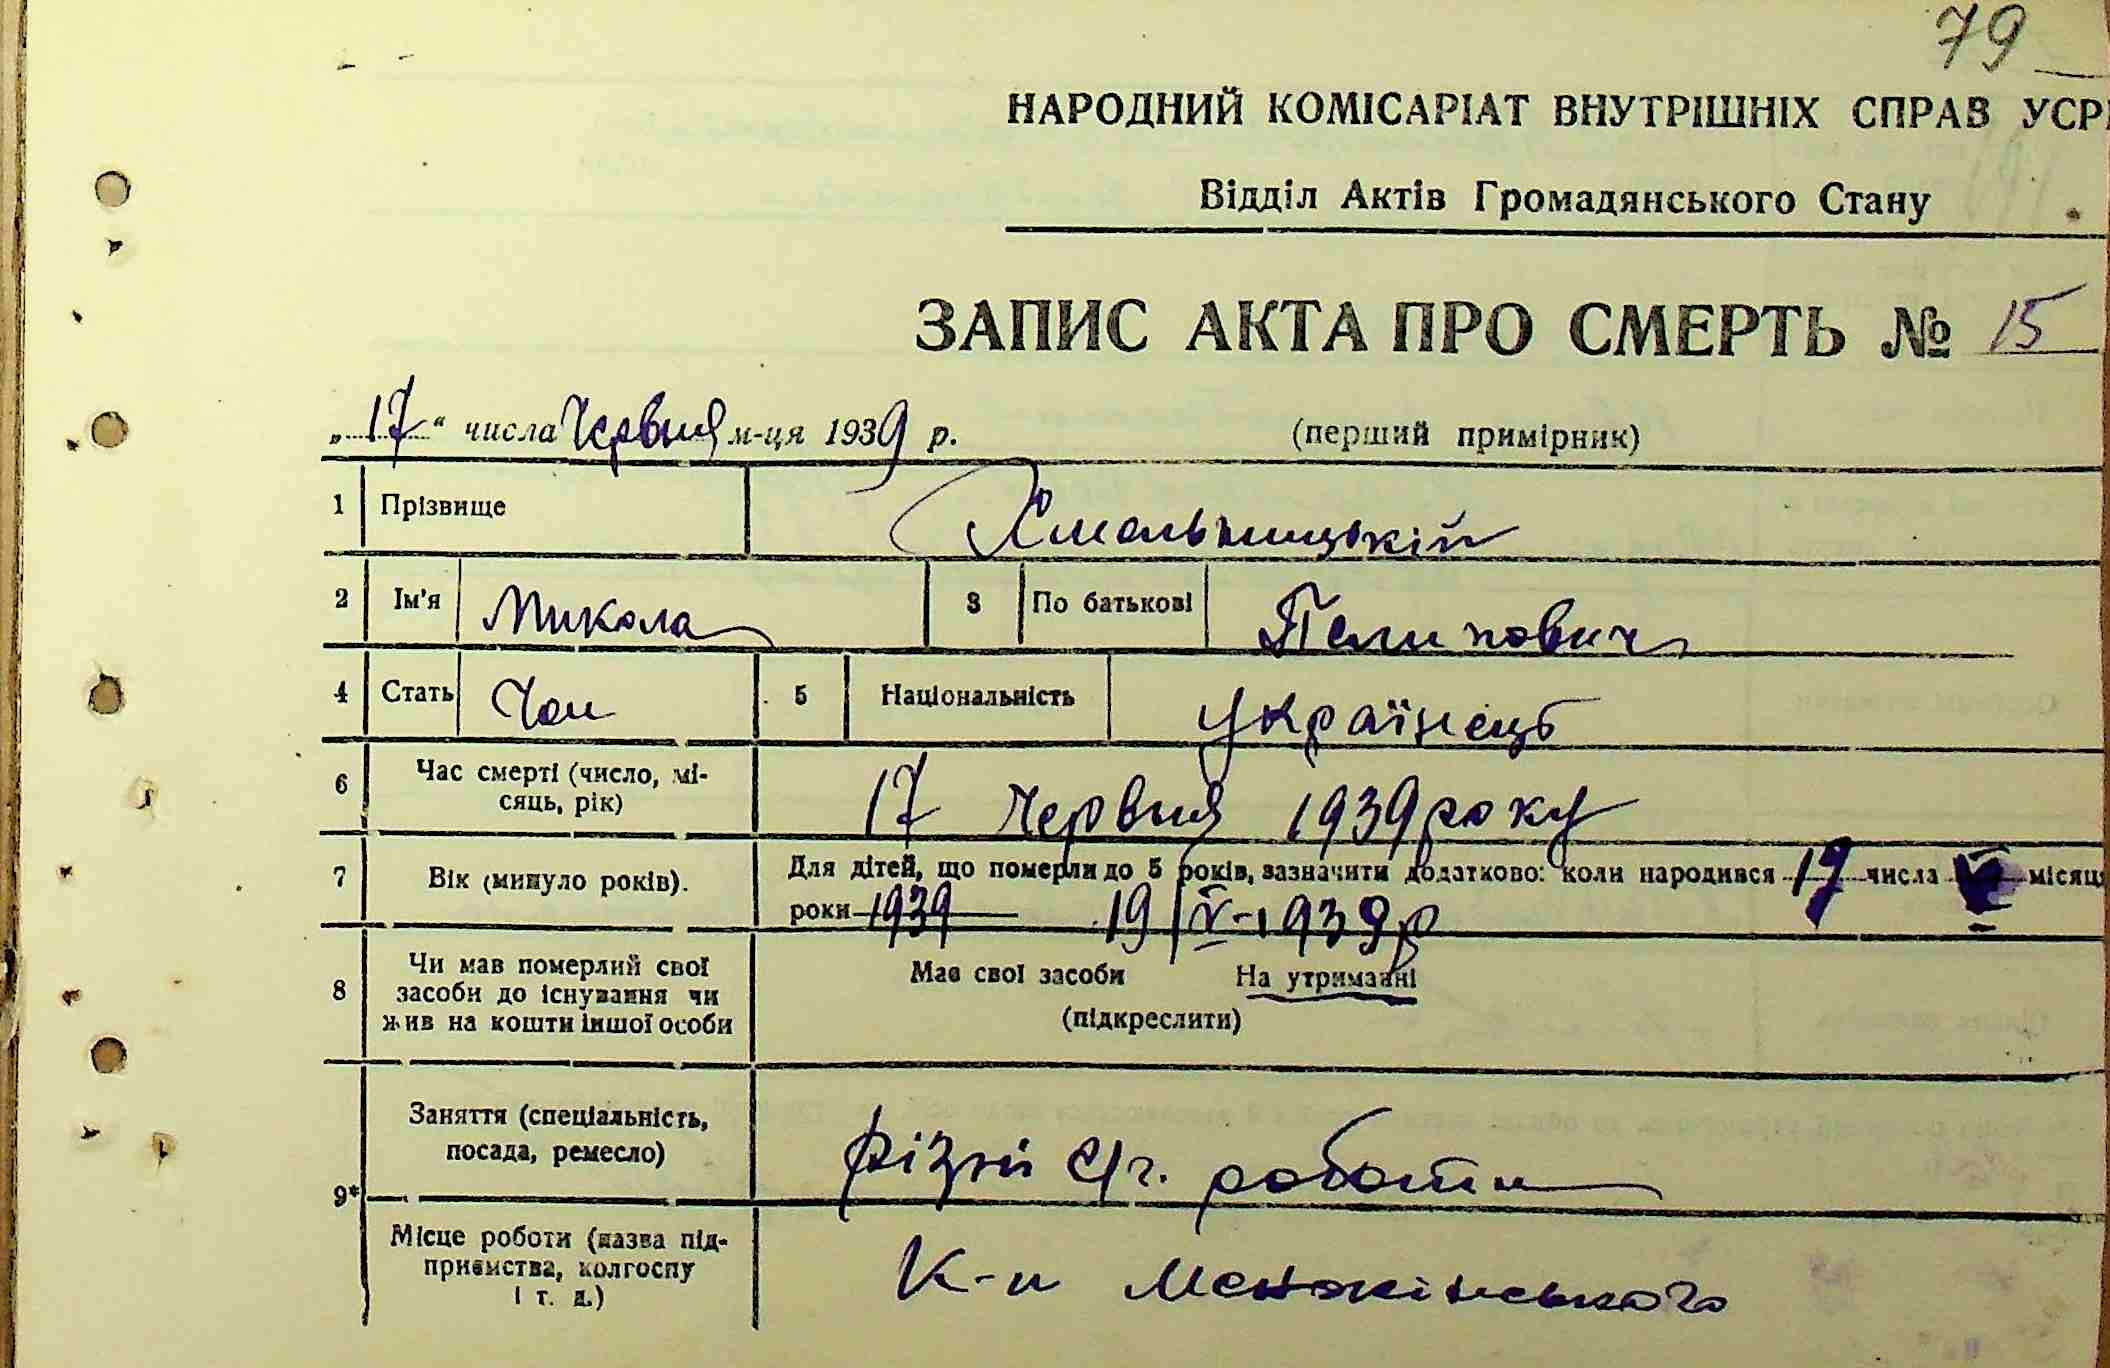 79
НАРОДНИЙ КОМІСАРІАТ ВНУТРІШНІХ СПРАВ УСР
Відділ Актів Громадянського Стану
ЗАПИС АКТА ПРО СМЕРТЬ № 15
„17“ числа Червня м-ця 1939 р. (перший примірник)
1 Прізвище Хмельницькій
2 Ім'я Микола 3 По батькові Пелипович
4 Стать Чол 5 Національність українець
6 Час смерті (число, мі-
сяць, рік) 17 червня 1939 року
7 Вік (минуло років). Для дітей, що померли до 5 років, зазначити додатково: коли народився 19 числа місяц
роки 1939 19/IV-1939 р
8 Чи мав померлий свої
засоби до існування чи
жив на кошти іншої особи
Має свої засоби На утриманні
(підкреслити)
9* Заняття (спеціальність,
посада, ремесло) різні с/г. роботи
Місце роботи (назва під-
приємства, колгоспу
і т. д.) К-п Менжінського